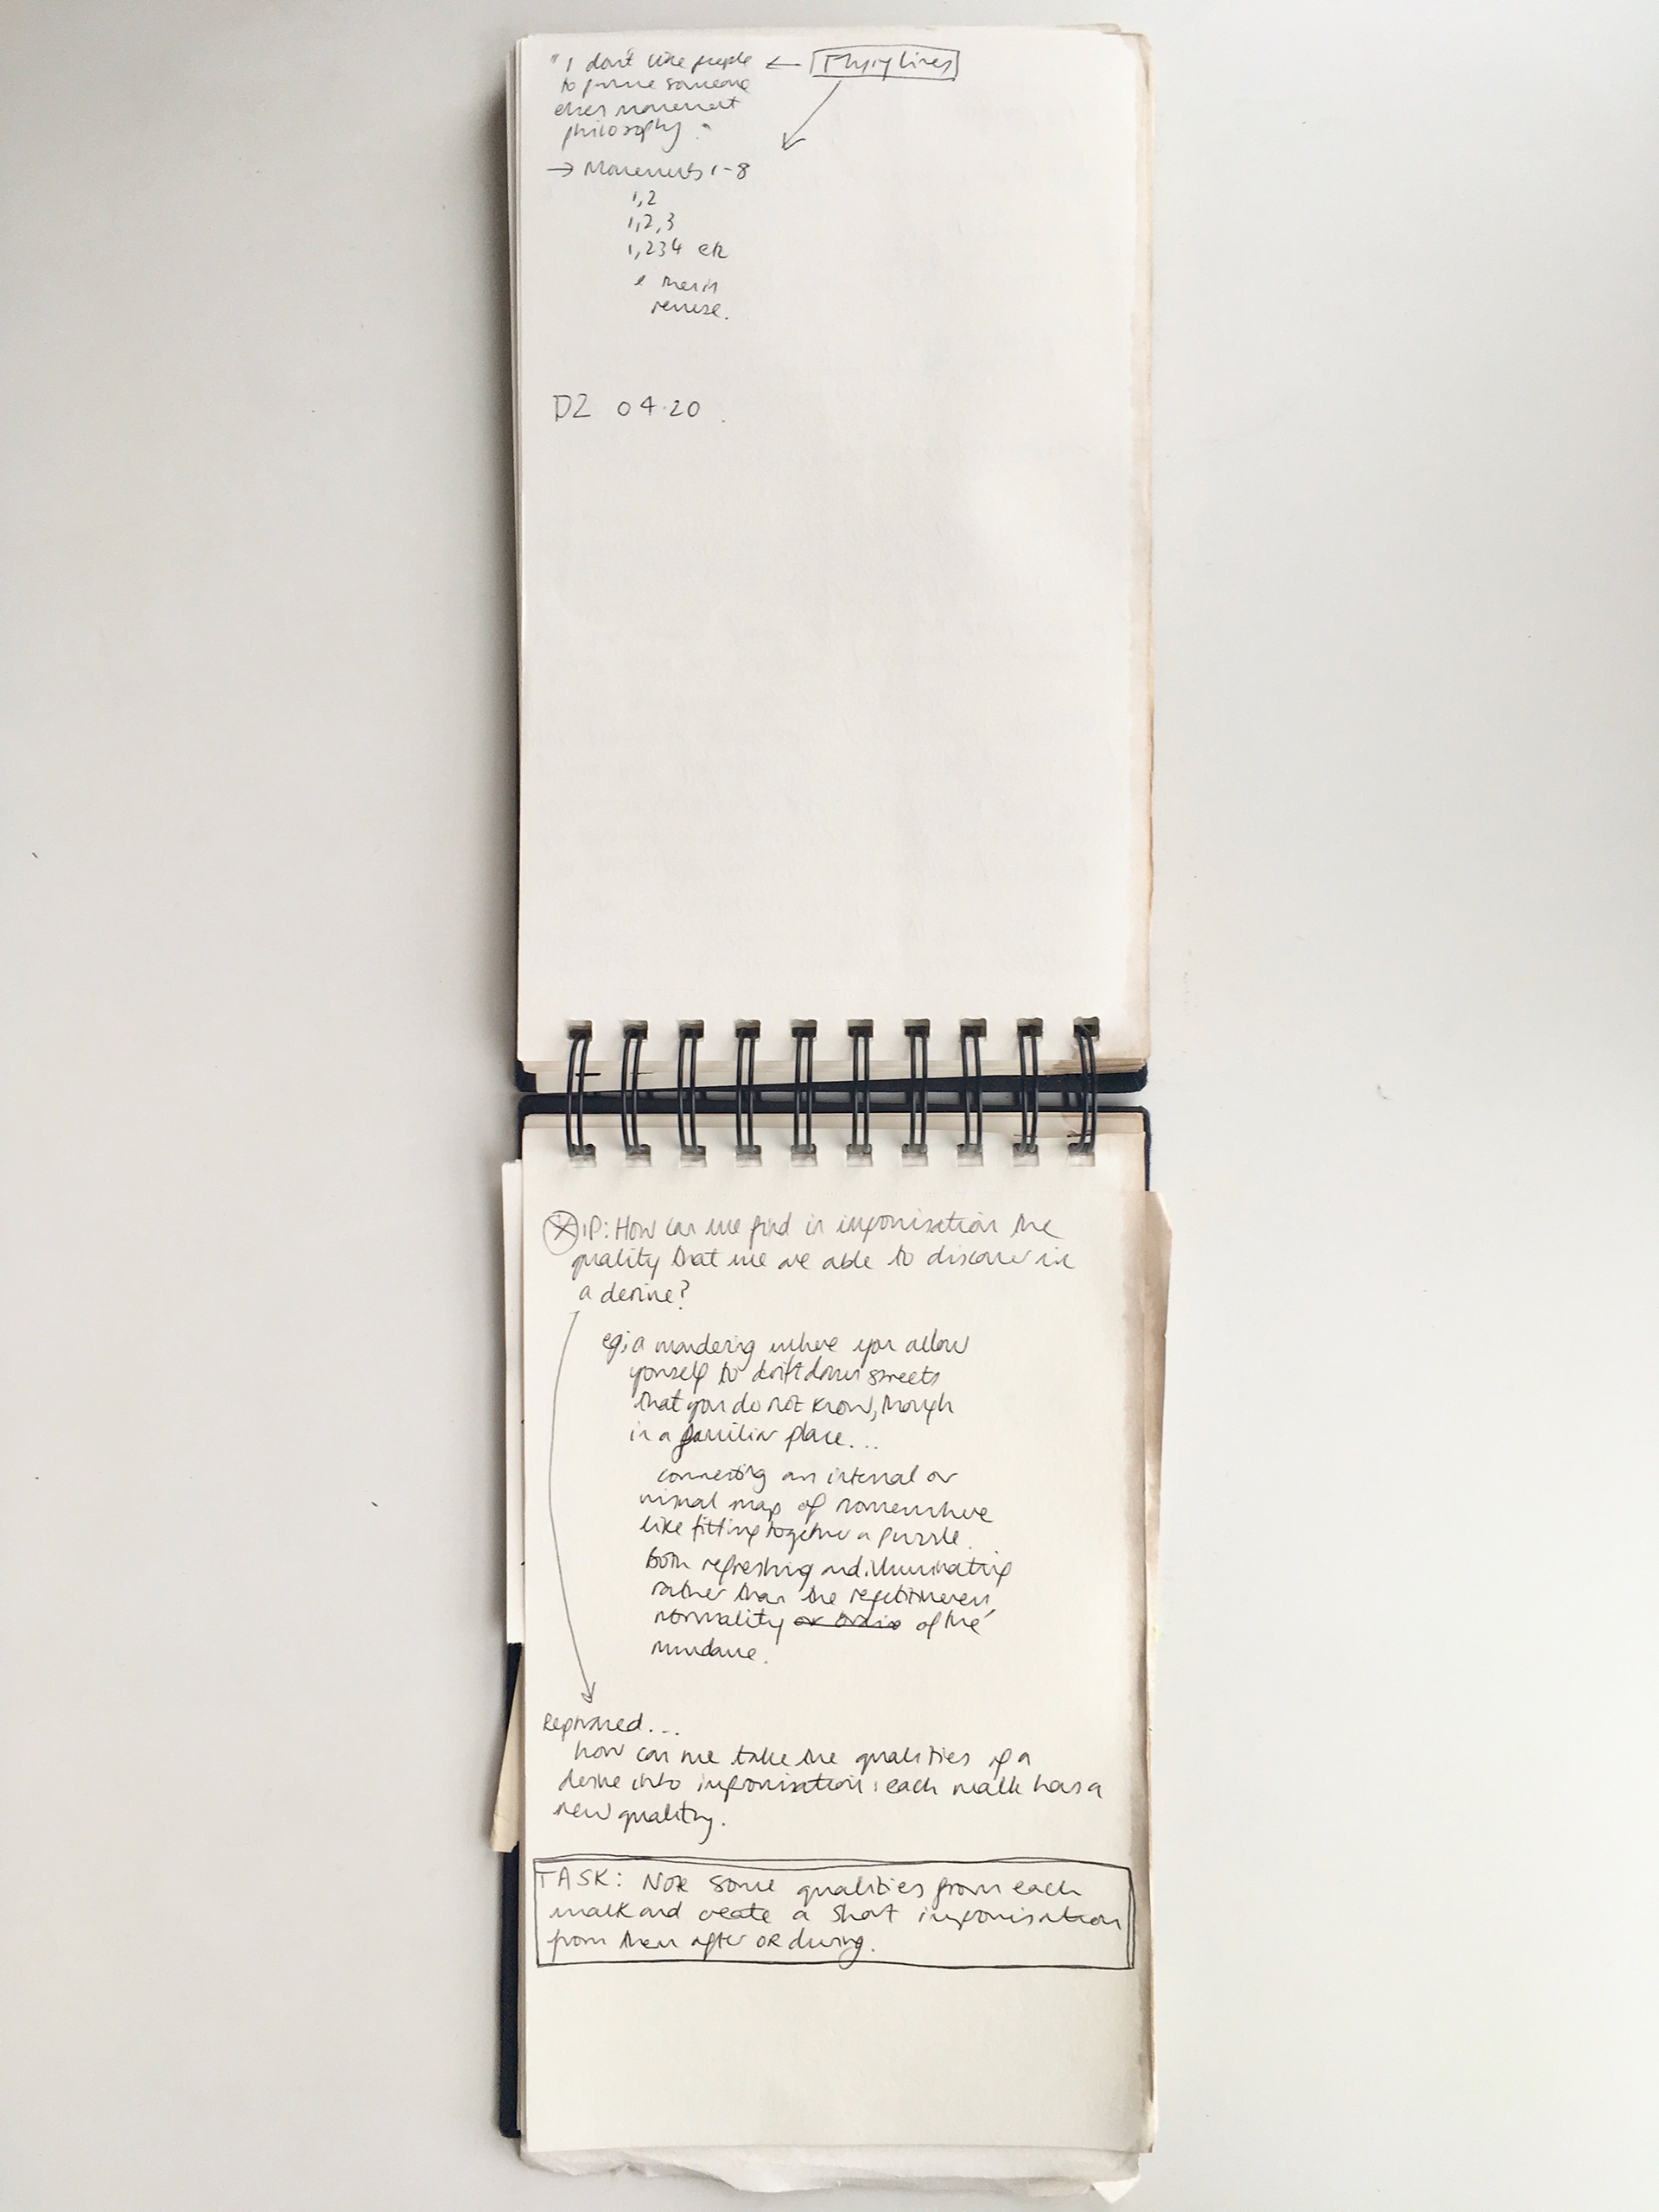 "I don't like people ←
to pursue someone
elses movement
philosophy."
→ Movements 1-8
1,2
1,2,3
1,234 etc
& then in
reverse.
D2 04.20.
IP: How can we find in improvisation the
quality that we are able to discover in
a derive?
eg; a wandering where you allow
yourself to drift down streets
that you do not know, though
in a familiar place...
connecting an internal or
visual map of somewhere
like fitting together a puzzle.
both refreshing and illuminating
rather than the repetitiveness,
normality of the
mundane.
Rephrased...
how can we take the qualities of a
derive into improvisation: each walk has a
new quality.
TASK: Note some qualities from each
walk and create a short improvisation
from them after OR during.